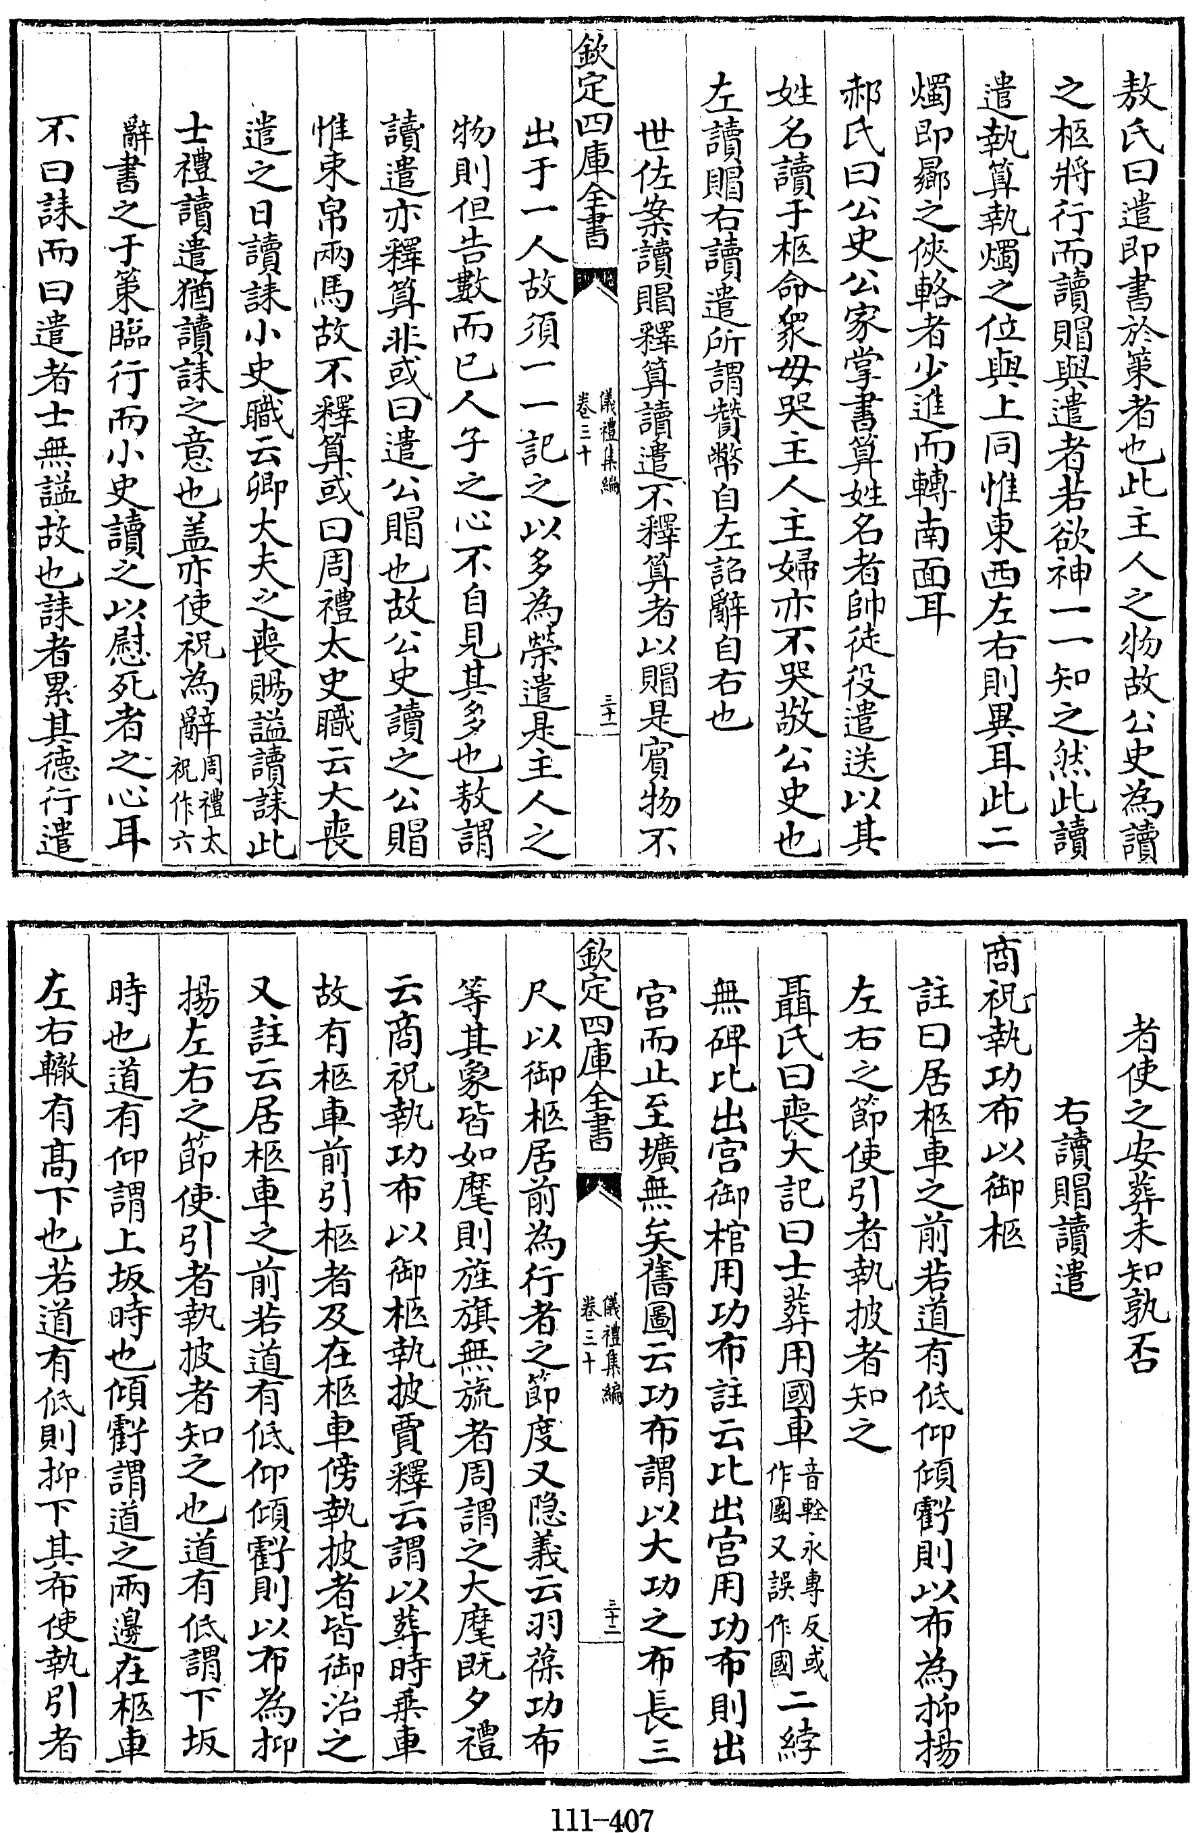 敖氏曰遣即書於策者也此主人之物故公史為讀
之柩將行而讀賵與遣者若欲神一一知之然此讀
遣執算執燭之位與上同惟東西左右則異耳此二
燭即曏之俠輅者少進而轉南面耳
郝氏曰公史公家掌書算姓名者帥徒役遣送以其
姓名讀于柩命衆毋哭主人主婦亦不哭敬公史也
左讀賵右讀遣所謂贊幣自左詔辭自右也
世佐案讀賵釋算讀遣不釋算者以賵是賓物不
欽定四庫全書
儀禮集編
卷三十
三十一
出于一人故須一一記之以多為榮遣是主人之
物則但告數而已人子之心不自見其多也敖謂
讀遣亦釋算非或曰遣公賵也故公史讀之公賵
惟束帛兩馬故不釋算或曰周禮太史職云大喪
遣之日讀誄小史職云卿大夫之喪賜諡讀誄此
士禮讀遣猶讀誄之意也盖亦使祝為辭周禮太
祝作六
辭書之于策臨行而小史讀之以慰死者之心耳
不曰誄而曰遣者士無諡故也誄者累其德行遣
者使之安葬未知孰否
右讀賵讀遣
商祝執功布以御柩
註曰居柩車之前若道有低仰傾虧則以布為抑揚
左右之節使引者執披者知之
聶氏曰喪大記曰士葬用國車音輇永專反或
作團又誤作國二綍
無碑比出宫御棺用功布註云比出宫用功布則出
宫而止至壙無矣舊圖云功布謂以大功之布長三
欽定四庫全書
儀禮集編
卷三十
三十二
尺以御柩居前為行者之節度又隐義云羽葆功布
等其象皆如麾則旌旗無旒者周謂之大麾既夕禮
云商祝執功布以御柩執披賈釋云謂以葬時乗車
故有柩車前引柩者及在柩車傍執披者皆御治之
又註云居柩車之前若道有低仰傾虧則以布為抑
揚左右之節使引者執披者知之也道有低謂下坂
時也道有仰謂上坂時也傾虧謂道之兩邊在柩車
左右轍有高下也若道有低則抑下其布使執引者
111-407